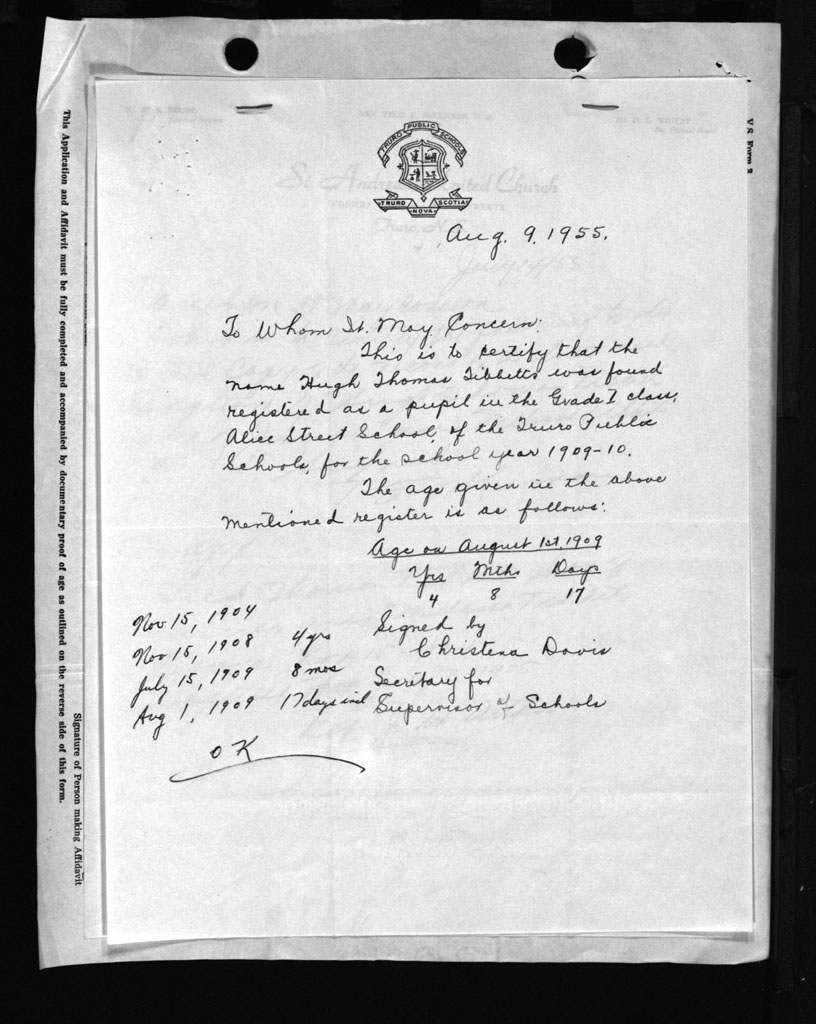 TRURO PUBLIC SCHOOLS
TRURO NOVA SCOTIA
St. Andrew's United Church
Aug. 9, 1955.
To Whom It May Concern:
This is to certify that the
name Hugh Thomas Tibbetts was found
registered as a pupil in the Grade I class,
Alice Street School, of the Truro Public
Schools, for the school year 1909-10.
The age given in the above
mentioned register is as follows:
Age on August 1st, 1909
Yrs Mths Days
4 8 17
Signed by
Christena Davis
Secretary for
Supervisor of Schools
Nov 15, 1904
Nov 15, 1908 4 yrs
July 15, 1909 8 mos
Aug 1, 1909 17 days incl
OK
This Application and Affidavit must be fully completed and accompanied by documentary proof of age as outlined on the reverse side of this form.
Signature of Person making Affidavit
V.S. Form 2